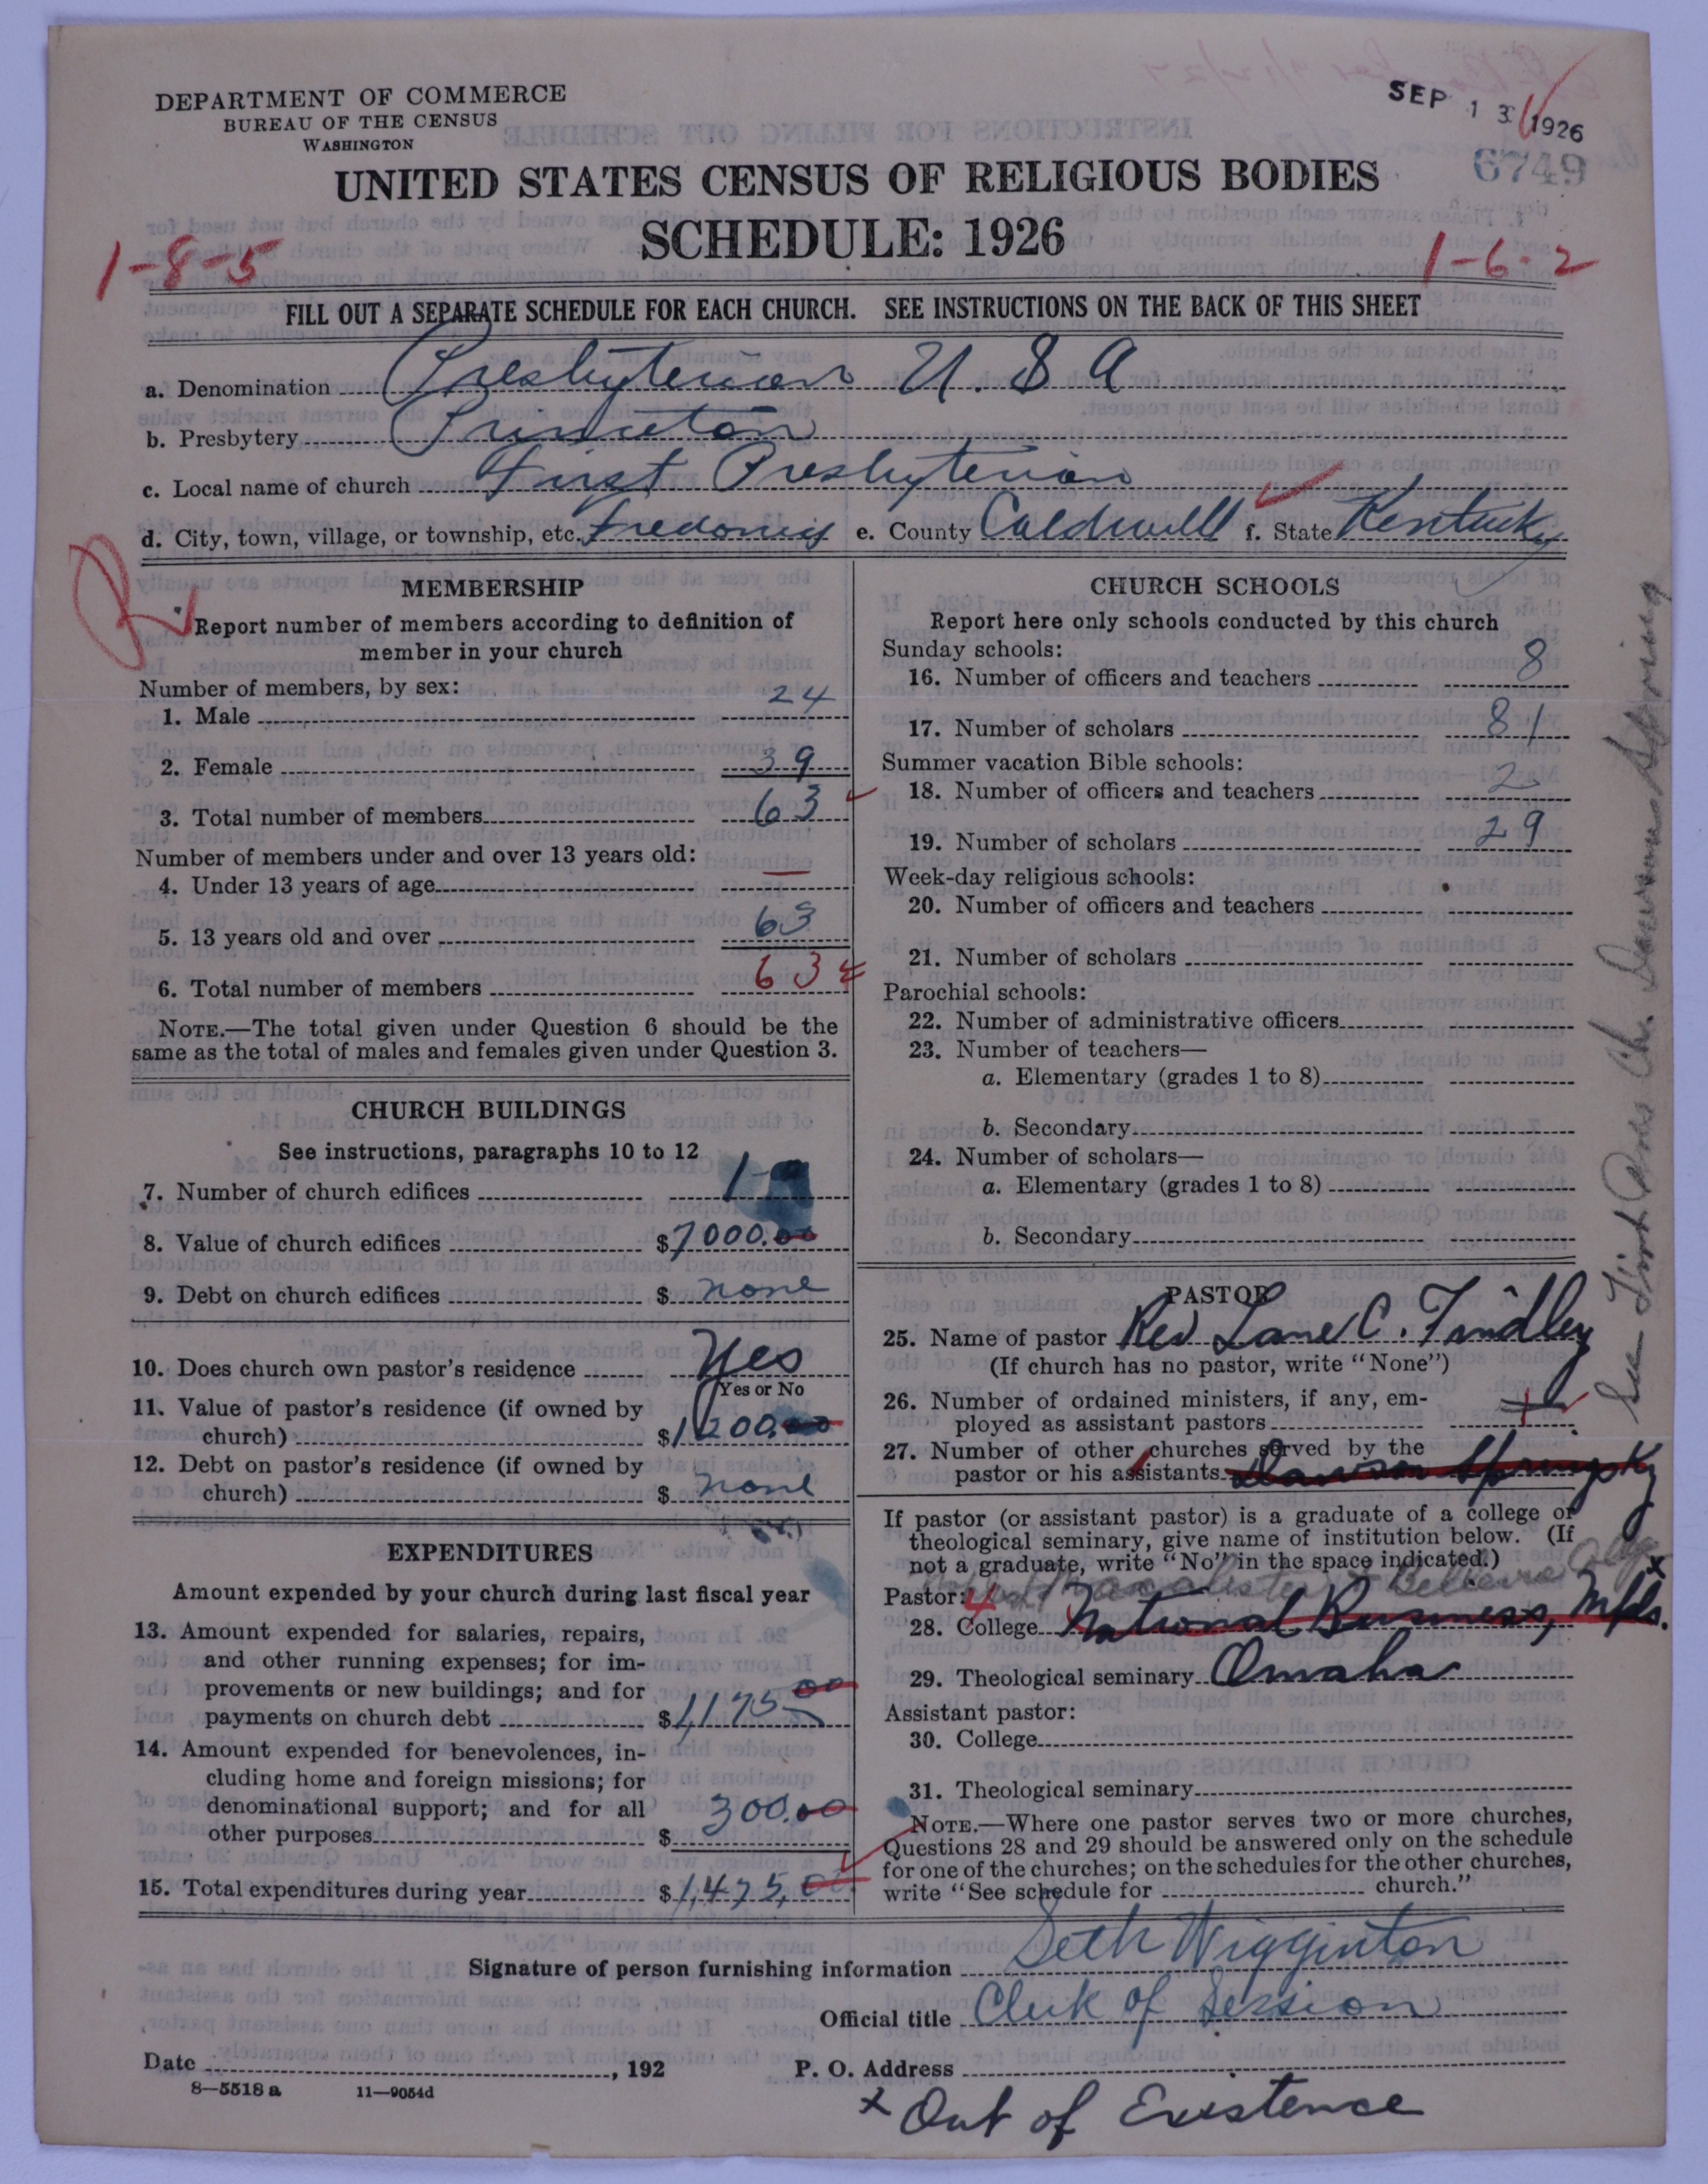 DEPARTMENT OF COMMERCE
BUREAU OF THE CENSUS
WASHINGTON
SEP 13 1926
6749
UNITED STATES CENSUS OF RELIGIOUS BODIES
SCHEDULE: 1926
1-8-5
1-6-2
FILL OUT A SEPARATE SCHEDULE FOR EACH CHURCH. SEE INSTRUCTIONS ON THE BACK OF THIS SHEET
a. Denomination Presbyterian U. S A
b. Presbytery Princeton
c. Local name of church First Presbyterian
d. City, town, village, or township, etc. Fredonia e. County Caldwell f. State Kentucky
MEMBERSHIP
Report number of members according to definition of
member in your church
Number of members, by sex:
1. Male 24
2. Female 39
3. Total number of members 63
Number of members under and over 13 years old:
4. Under 13 years of age —
5. 13 years old and over 63
6. Total number of members 63
NOTE.—The total given under Question 6 should be the
same as the total of males and females given under Question 3.
CHURCH BUILDINGS
See instructions, paragraphs 10 to 12
7. Number of church edifices 1
8. Value of church edifices $7000.00
9. Debt on church edifices $ none
10. Does church own pastor's residence Yes
Yes or No
11. Value of pastor's residence (if owned by
church) $1200.00
12. Debt on pastor's residence (if owned by
church) $ none
EXPENDITURES
Amount expended by your church during last fiscal year
13. Amount expended for salaries, repairs,
and other running expenses; for im-
provements or new buildings; and for
payments on church debt $1,175 00
14. Amount expended for benevolences, in-
cluding home and foreign missions; for
denominational support; and for all
other purposes $ 300.00
15. Total expenditures during year $1,475.00
CHURCH SCHOOLS
Report here only schools conducted by this church
Sunday schools:
16. Number of officers and teachers 8
17. Number of scholars 81
Summer vacation Bible schools:
18. Number of officers and teachers 2
19. Number of scholars 29
Week-day religious schools:
20. Number of officers and teachers
21. Number of scholars
Parochial schools:
22. Number of administrative officers
23. Number of teachers—
a. Elementary (grades 1 to 8)
b. Secondary
24. Number of scholars—
a. Elementary (grades 1 to 8)
b. Secondary
PASTOR
25. Name of pastor Rev Lane C. Findley
(If church has no pastor, write "None")
26. Number of ordained ministers, if any, em-
ployed as assistant pastors
27. Number of other churches served by the
pastor or his assistants Dawson Springs Ky
If pastor (or assistant pastor) is a graduate of a college or
theological seminary, give name of institution below. (If
not a graduate, write "No" in the space indicated.)
Pastor: Macalister Bellevue
28. College National Business, Mpls. x
29. Theological seminary Omaha
Assistant pastor:
30. College
31. Theological seminary
NOTE.—Where one pastor serves two or more churches,
Questions 28 and 29 should be answered only on the schedule
for one of the churches; on the schedules for the other churches,
write "See schedule for church."
See First Pres Ch. Dawson Spring
Signature of person furnishing information Seth Wigginton
Official title Clerk of Session
Date , 192 P. O. Address
8—5518 a 11—9054d
x Out of Existence